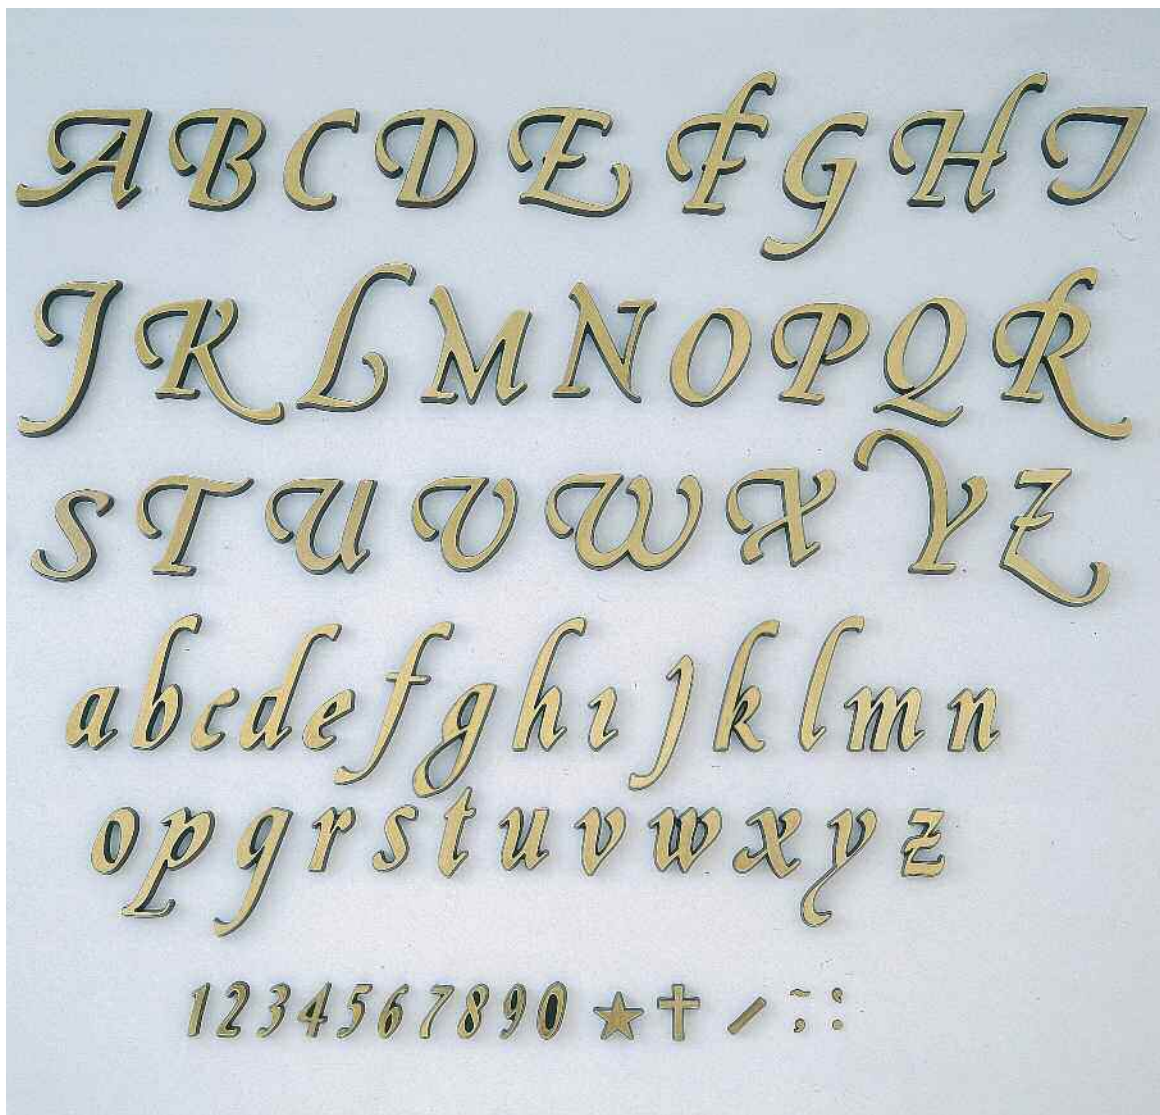 A B C D E F G H I
J K L M N O P Q R
S T U V W X Y Z
a b c d e f g h ı j k l m n
o p q r s t u v w x y z
1 2 3 4 5 6 7 8 9 0 ★ ✝ / ~ ; :